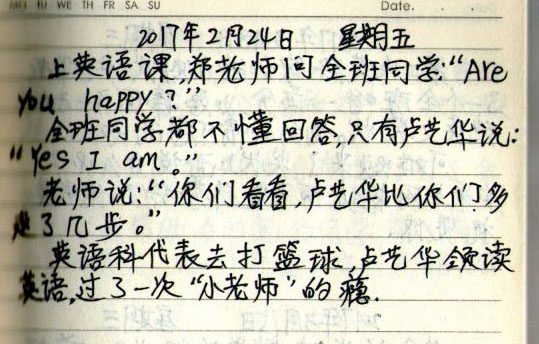 MO TU WE TH FR SA SU Date.
2017年2月24日 星期五
上英语课,郑老师问全班同学:“Are
you happy?”
全班同学都不懂回答,只有卢艺华说:
“Yes I am。”
老师说:“你们看看,卢艺华比你们多
走了几步。”
英语科代表去打篮球,卢艺华领读
英语,过了一次“小老师”的瘾.